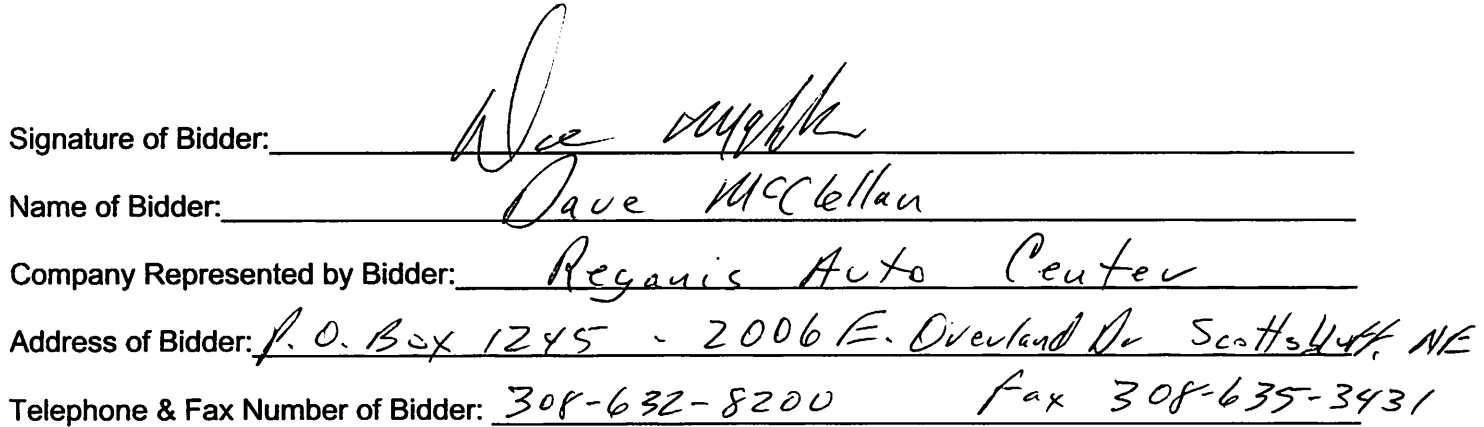 Signature of Bidder:
Name of Bidder: Dave McClellan
Company Represented by Bidder: Reganis Auto Center
Address of Bidder: P.O. Box 1245 - 2006 E. Overland Dr Scottsbluff, NE
Telephone & Fax Number of Bidder: 308-632-8200 Fax 308-635-3431